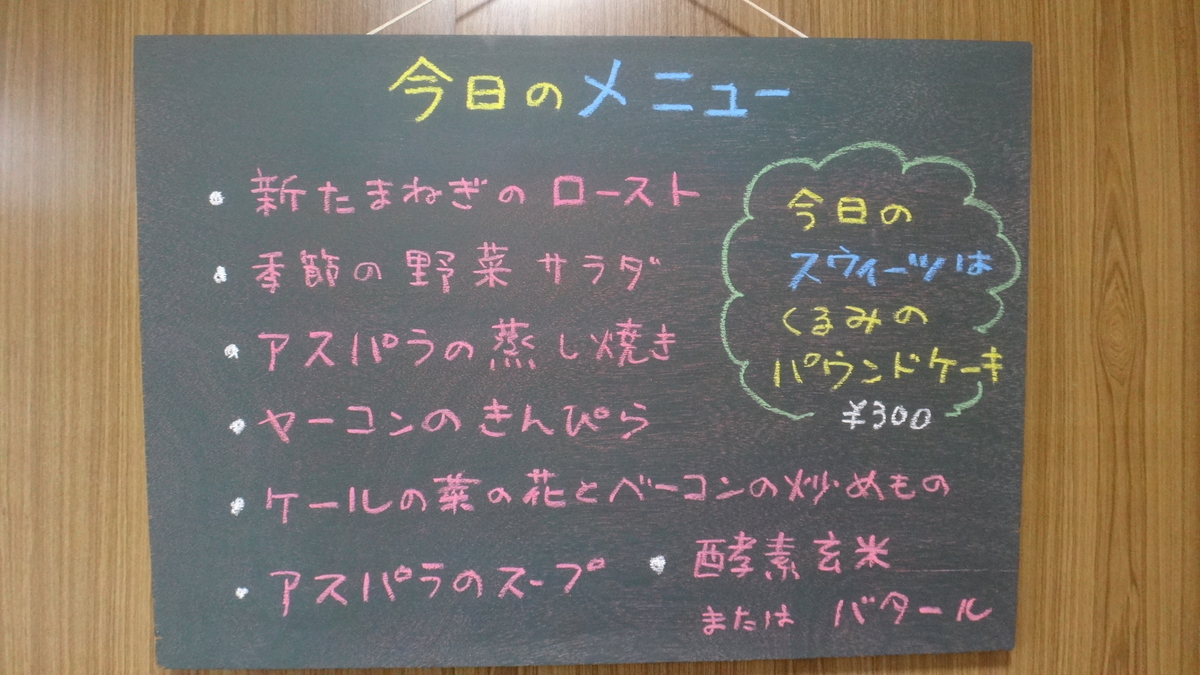 今日のメニュー
・新たまねぎのロースト
・季節の野菜サラダ
・アスパラの蒸し焼き
・ヤーコンのきんぴら
・ケールの菜の花とベーコンの炒めもの
・アスパラのスープ
・酵素玄米
または バタール
今日の
スウィーツは
くるみの
パウンドケーキ
¥300